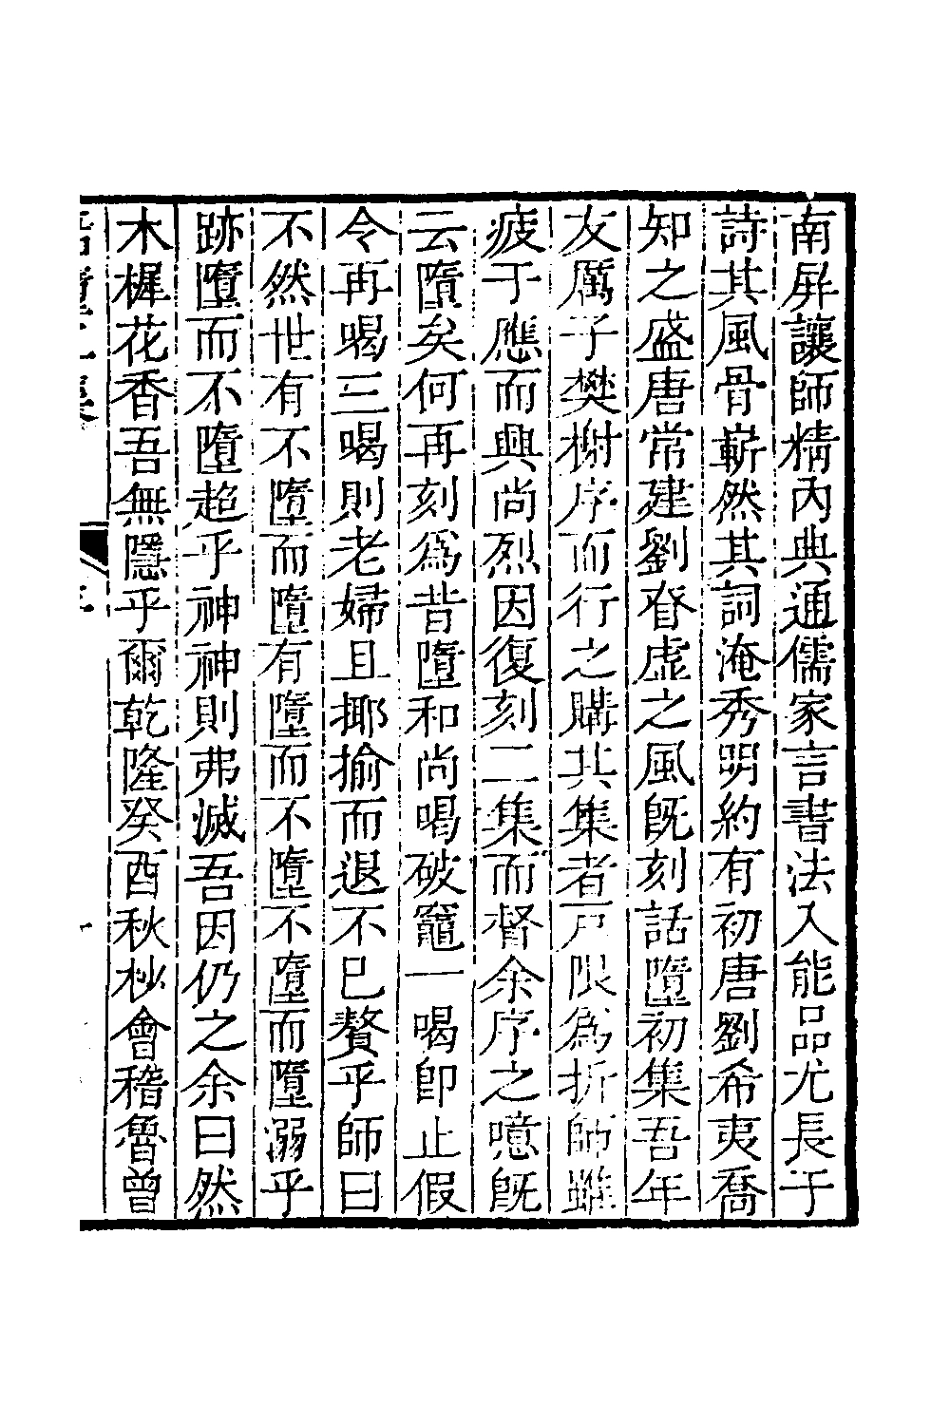 南屏讓師精內典通儒家言書法入能品尤長于
詩其風骨嶄然其詞淹秀明約有初唐劉希夷喬
知之盛唐常建劉眘虛之風旣刻話墮初集吾年
友厲子樊榭序而行之購其集者戸限爲折師雖
疲于應而興尚烈因復刻二集而督余序之噫旣
云墮矣何再刻爲昔墮和尚喝破竈一喝卽止假
令再喝三喝則老婦且揶揄而退不已贅乎師曰
不然世有不墮而墮有墮而不墮不墮而墮溺乎
跡墮而不墮超乎神神則弗滅吾因仍之余曰然
木樨花香吾無隱乎爾乾隆癸酉秋杪會稽魯曾